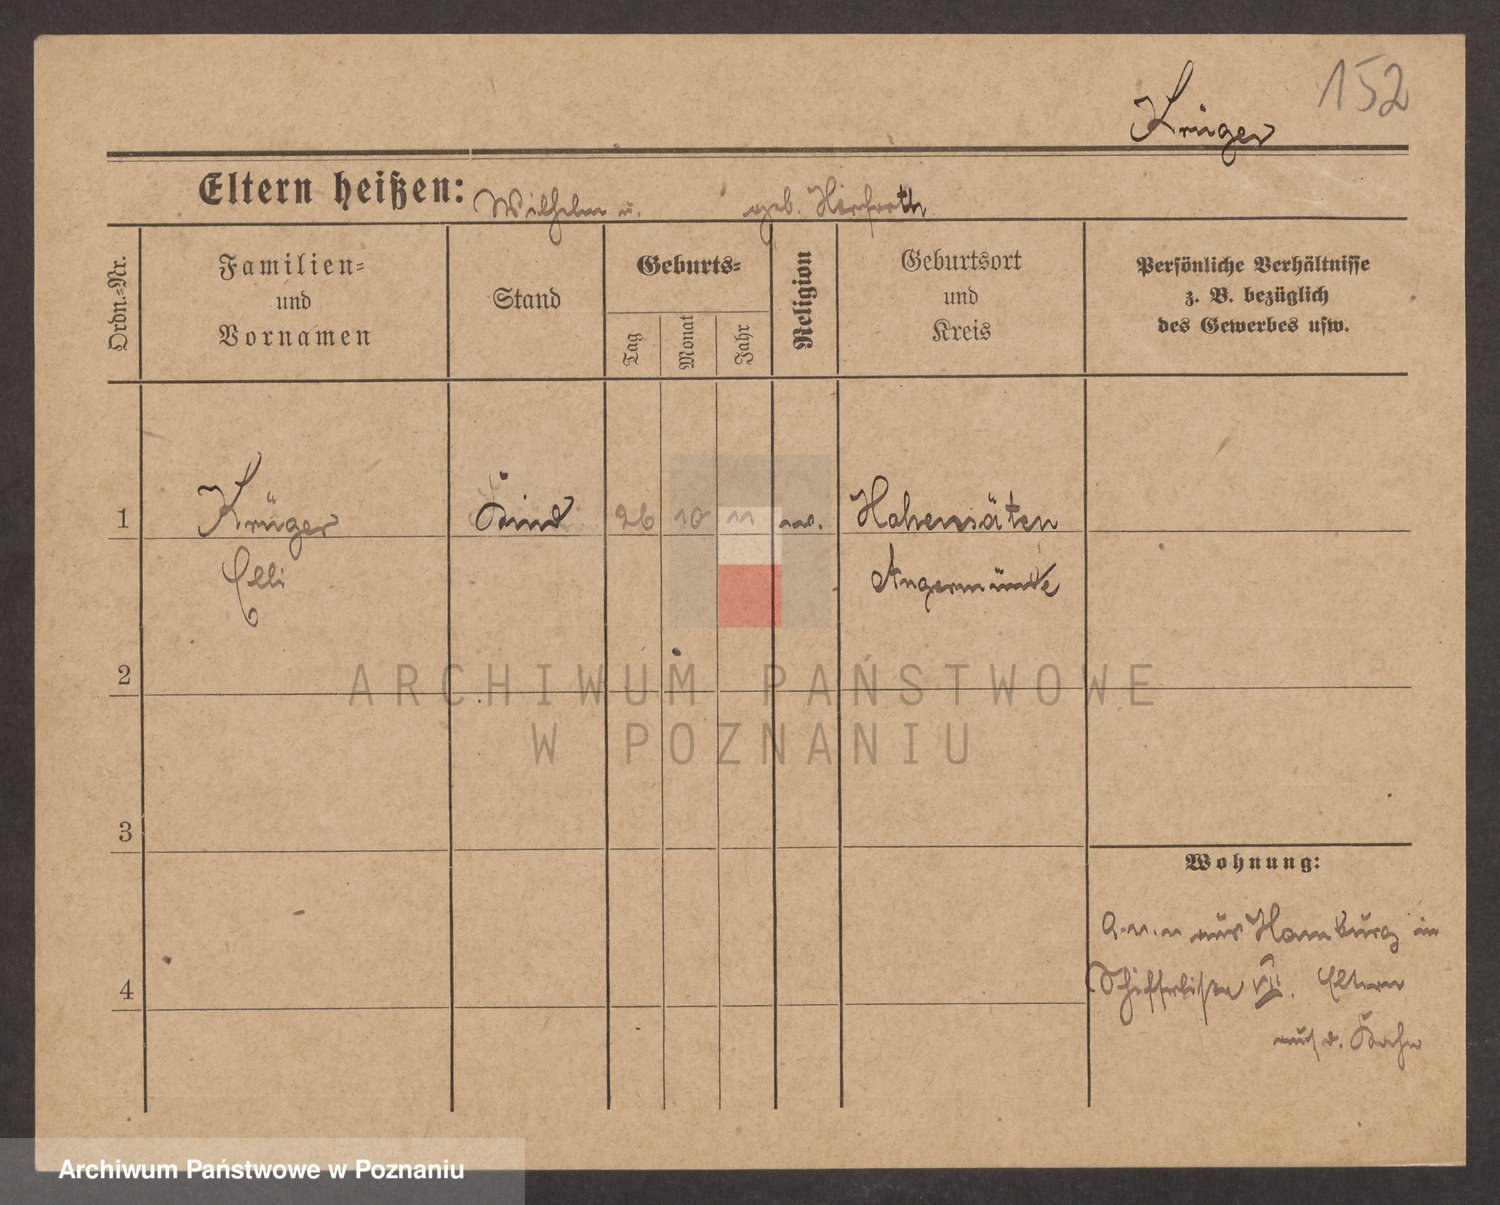 152
Krüger
Eltern heißen: Wilhelm u. geb.
Ordn.-Nr.
Familien-
und
Vornamen
Stand
Geburts-
Tag
Monat
Jahr
Religion
Geburtsort
und
Kreis
Persönliche Verhältnisse
z. B. bezüglich
des Gewerbes usw.
1 Krüger Kind 26 10 11 ev. Hohensäten
Elli Angermünde
2
3
4
Wohnung:
aus Hamburg in
Schifferliste VII. Eltern
auf d. Kahn
ARCHIWUM PAŃSTWOWE
W POZNANIU
Archiwum Państwowe w Poznaniu